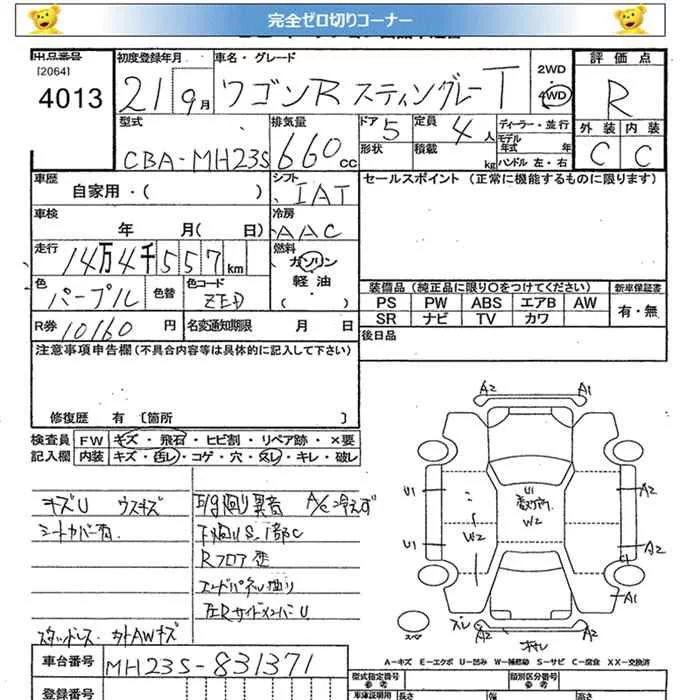 完全ゼロ切りコーナー
出品番号
[2064]
4013
初度登録年月
21 9月
車名・グレード
ワゴンR スティングレーT
2WD
4WD
評価点
R
外装 内装
C C
型式
CBA-MH23S
排気量
660cc
ドア 5
形状
定員 4人
積載 kg
ディーラー・並行
モデル年式 年
ハンドル 左・右
車歴
自家用・( )
シフト
IAT
セールスポイント (正常に機能するものに限ります)
車検
年 月( 日)
冷房
AAC
走行
14万4千557km
燃料
ガソリン
軽油
( )
色
パープル
色替
色コード
ZED
装備品(純正品に限り○をつけてください)
新車保証書
PS PW ABS エアB AW
SR ナビ TV カワ
有・無
R券 10160 円
名変通知期限 月 日
後日品
注意事項申告欄(不具合内容等は具体的に記入して下さい)
修復歴 有 [箇所 ]
検査員記入欄
FW キズ・飛石・ヒビ割・リペア跡・×要
内装 キズ・汚レ・コゲ・穴・スレ・キレ・破レ
キズU ウスキズ
シートカバー有
スタッドレス カトAWキズ
E/g廻り異音 A/C冷えず
下廻りS、1部C
Rフロア歪
エンドパネル曲り
左RサイドメンバーU
A2 A1
U1 U1 A2
W2 W2
U1 A2
A1
スペ
ズレ A2 A2
A－キズ E－エクボ U－凹み W－補修跡 S－サビ C－腐食 XX－交換済
車台番号
MH23S-831371
登録番号
型式指定番号
参考
類別区分番号
参考
車庫証明用
長さ 幅 高さ